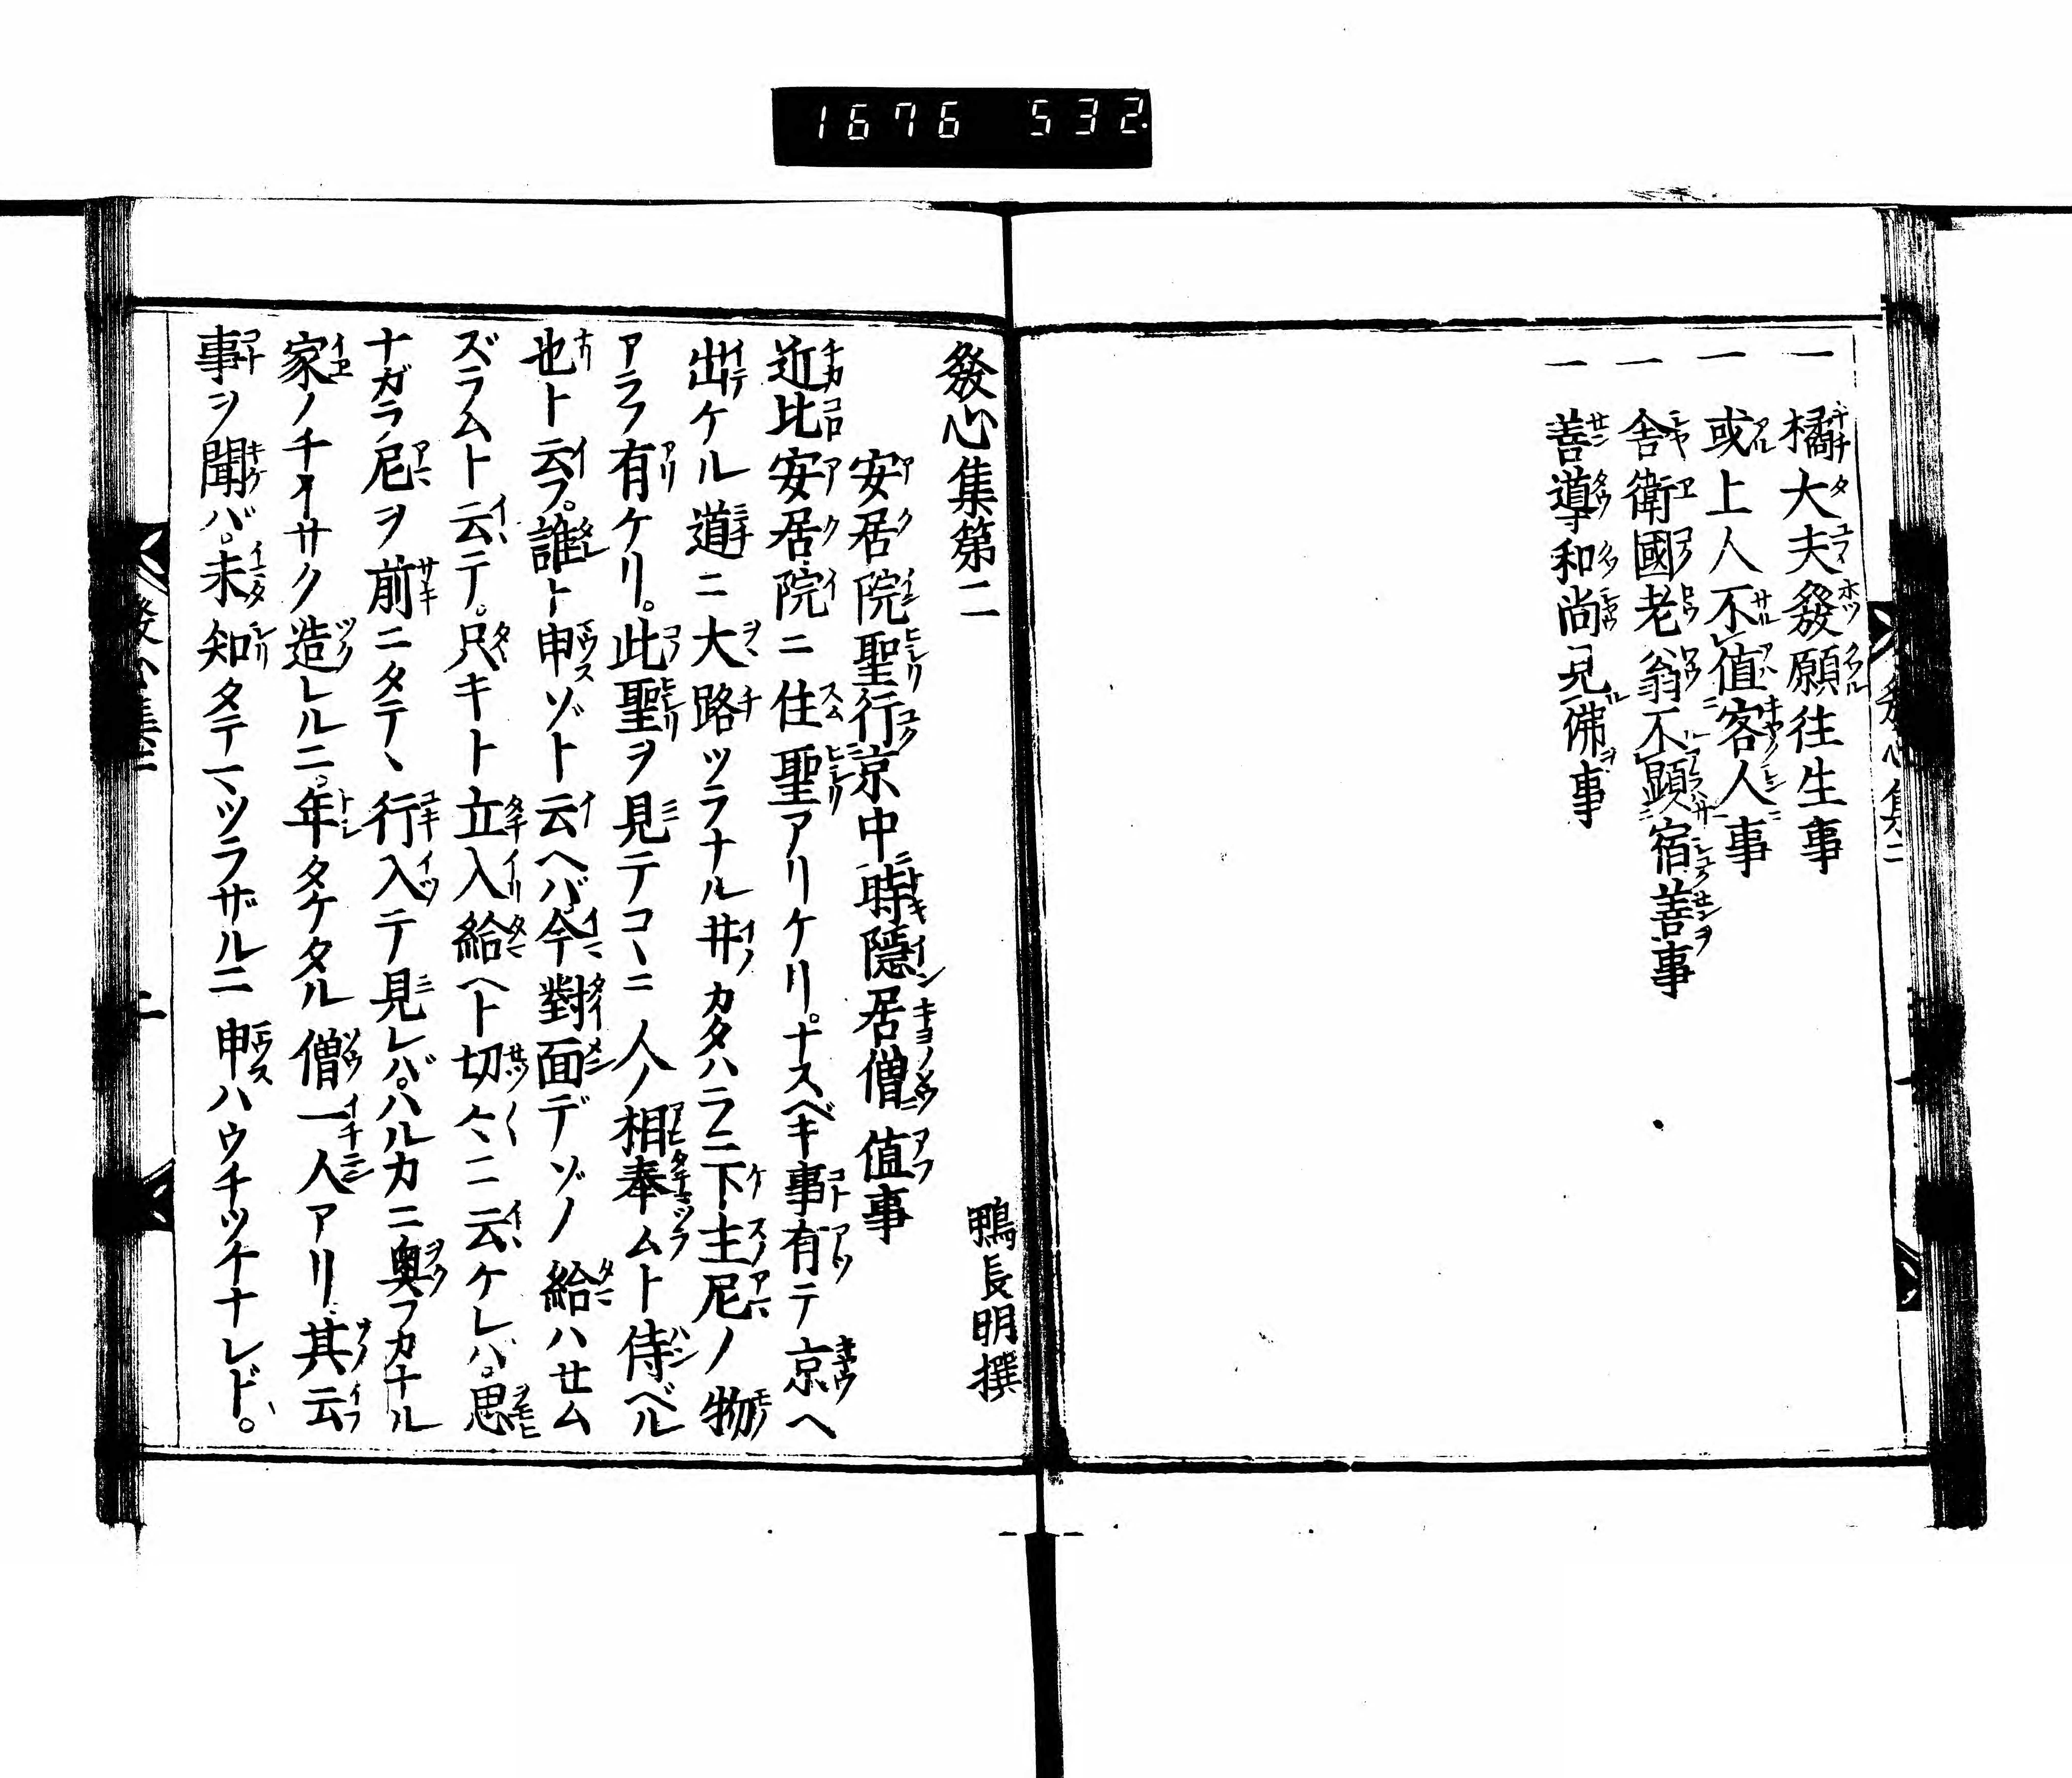 1676 532
一 橘大夫發願往生事
一 或上人不値客人事
一 舍衛國老翁不顕宿善事
一 善導和尚見佛事
發心集第二
鴨長明撰
安居院聖行京中時隱居僧値事
近比安居院ニ住聖アリケリ。ナスベキ事有テ京ヘ
出ケル道ニ大路ツラナル井カタハラニ下主尼ノ物
アラフ有ケリ。此聖ヲ見テコヽニ人ノ相奉ムト侍ベル
也ト云フ。誰ト申ゾト云ヘバ今對面デゾノ給ハせム
ズラムト云テ。只キト立入給ヘト切々ニ云ケレバ。思
ナガラ尼ヲ前ニタテヽ行入テ見レバ。ハルカニ奥フカナル
家ノチイサク造レルニ。年タケタル僧一人アリ。其云
事ヲ聞バ。未知タテマツラザルニ申ハウチツケナレド。
發心集二
二